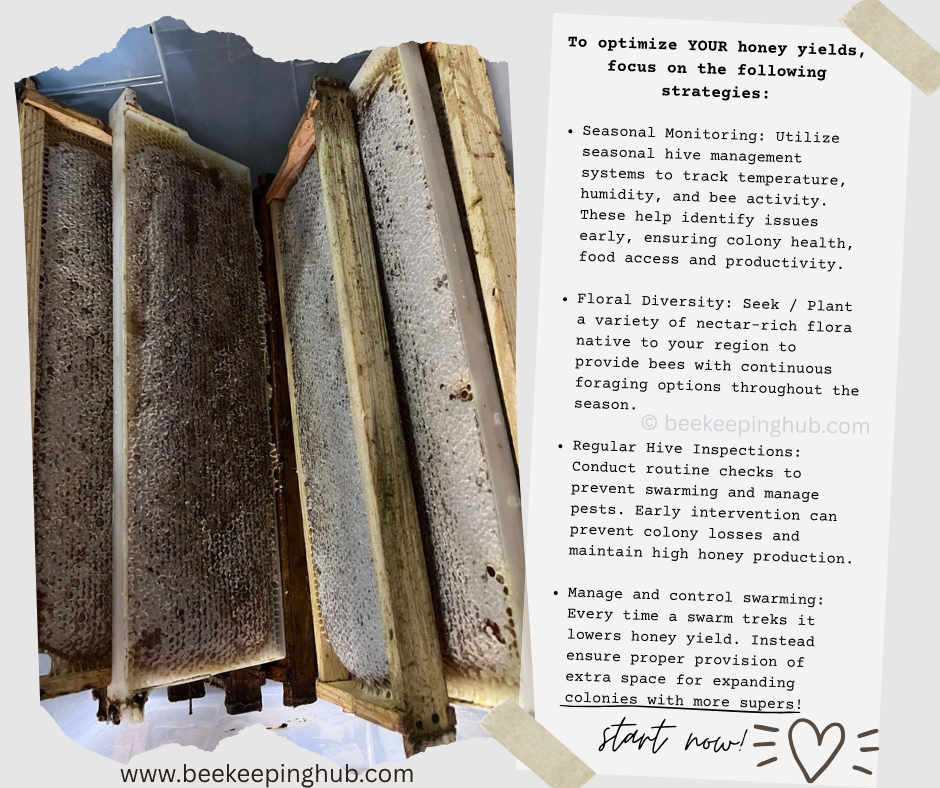 To optimize YOUR honey yields,
focus on the following
strategies:
• Seasonal Monitoring: Utilize
seasonal hive management
systems to track temperature,
humidity, and bee activity.
These help identify issues
early, ensuring colony health,
food access and productivity.
• Floral Diversity: Seek / Plant
a variety of nectar-rich flora
native to your region to
provide bees with continuous
foraging options throughout the
season.
© beekeepinghub.com
• Regular Hive Inspections:
Conduct routine checks to
prevent swarming and manage
pests. Early intervention can
prevent colony losses and
maintain high honey production.
• Manage and control swarming:
Every time a swarm treks it
lowers honey yield. Instead
ensure proper provision of
extra space for expanding
colonies with more supers!
start now!
www.beekeepinghub.com